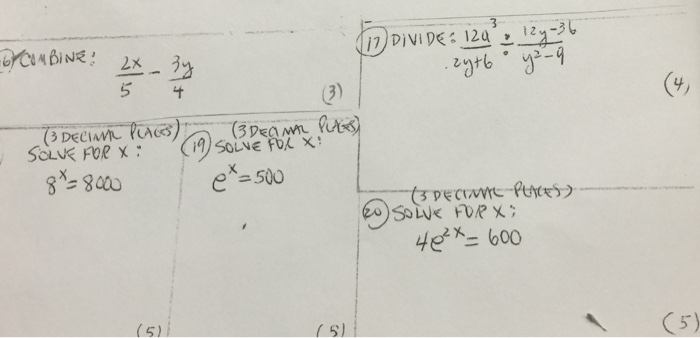 6) COMBINE: 2x/5 - 3y/4
(3)
(17) DIVIDE: 12a³/2y+6 ÷ 12y-36/y²-9
(4)
(3 DECIMAL PLACES)
SOLVE FOR X:
8ˣ=8000
(5)
(3 DECIMAL PLACES)
(19) SOLVE FOR X:
eˣ=500
(5)
(3 DECIMAL PLACES)
(20) SOLVE FOR X:
4e²ˣ=600
(5)